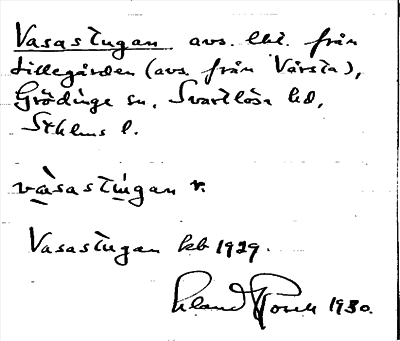 Vasastugan avs. lht. från
Lillegården (avs. från Vårsta),
Grödinge sn, Svartlösa hd,
Sthlms l.
vàsastúgan r.
Vasastugan kb 1929.
Erland 1930.